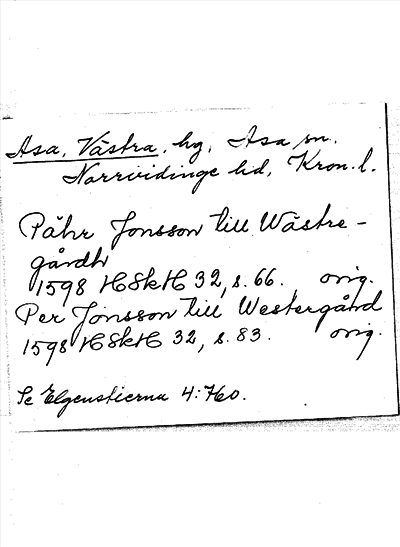 Asa, Västra, hg, Asa sn.
Norrvidinge hd, Kron. l.
Påhr Jonsson till Wästre-
gårdh
1598 HSkH 32, s. 66. orig.
Per Jönsson till Westergård
1598 HSkH 32, s. 83. orig.
Se Elgenstierna 4:760.